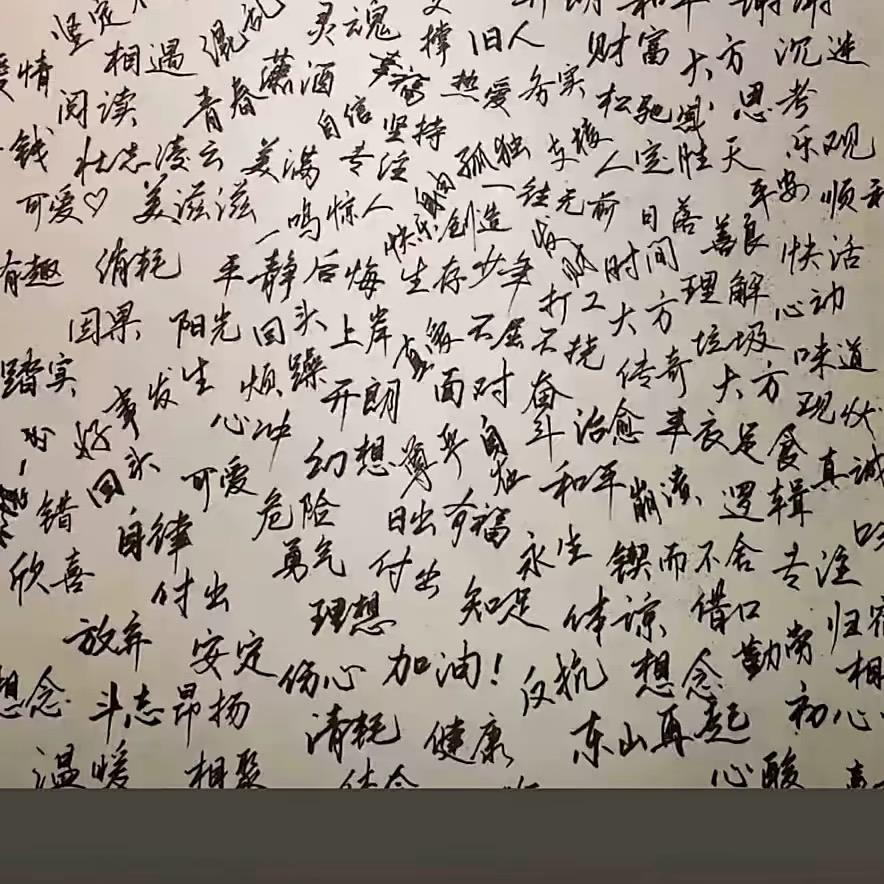 坚定 灵魂 开朗 和平 谢谢
爱情 相遇 混乱 撑 旧人 财富 大方 沉迷
阅读 青春 潇洒 英勇 热爱 务实 松驰 思考
钱 壮志凌云 美满 专注 自信 坚持 孤独 支撑 人定胜天 乐观
可爱♡ 美滋滋 一鸣惊人 快乐 自由 创造 一往无前 日落 平安 顺利
有趣 消耗 平静 后悔 生存 少年 发财 时间 善良 快活
因果 阳光 回头上岸 真象 不屈不挠 打工 大方 理解 心动
踏实 好事发生 烦躁 开朗 面对 奋斗 传奇 垃圾 大方 味道
心冲 幻想 尊卑 自由 治愈 丰衣足食 现状
错 回头 可爱 危险 日出 有福 和平 崩溃 逻辑 真诚
欣喜 自律 勇气 付出 永生 锲而不舍 专注
付出 理想 知足 体谅 借口 归宿
放弃 安定 伤心 加油! 反抗 想念 勤劳
想念 斗志昂扬 清耗 健康 东山再起 初心
温暖 相聚 体会 心酸